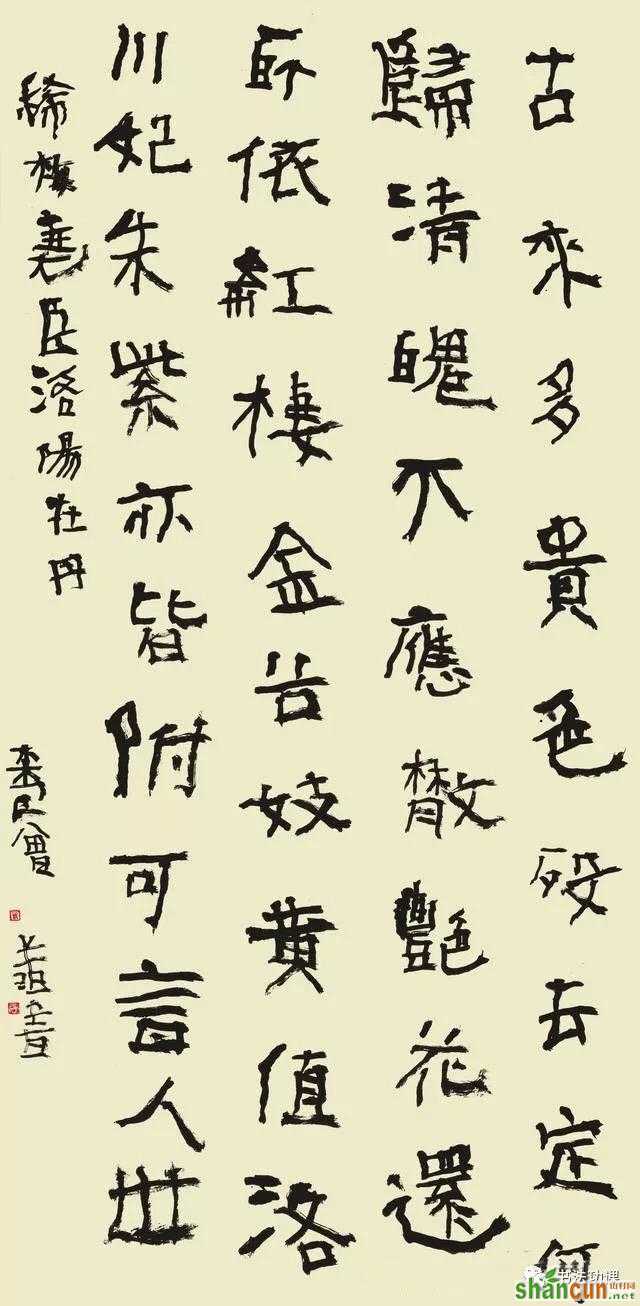 古來多貴色殁去定何
歸清魄不應散艷花還
所依紅棲金谷妓黄值洛
川妃朱紫亦皆附可言人世
稀梅堯臣洛陽牡丹
书法功课
shancun
.net